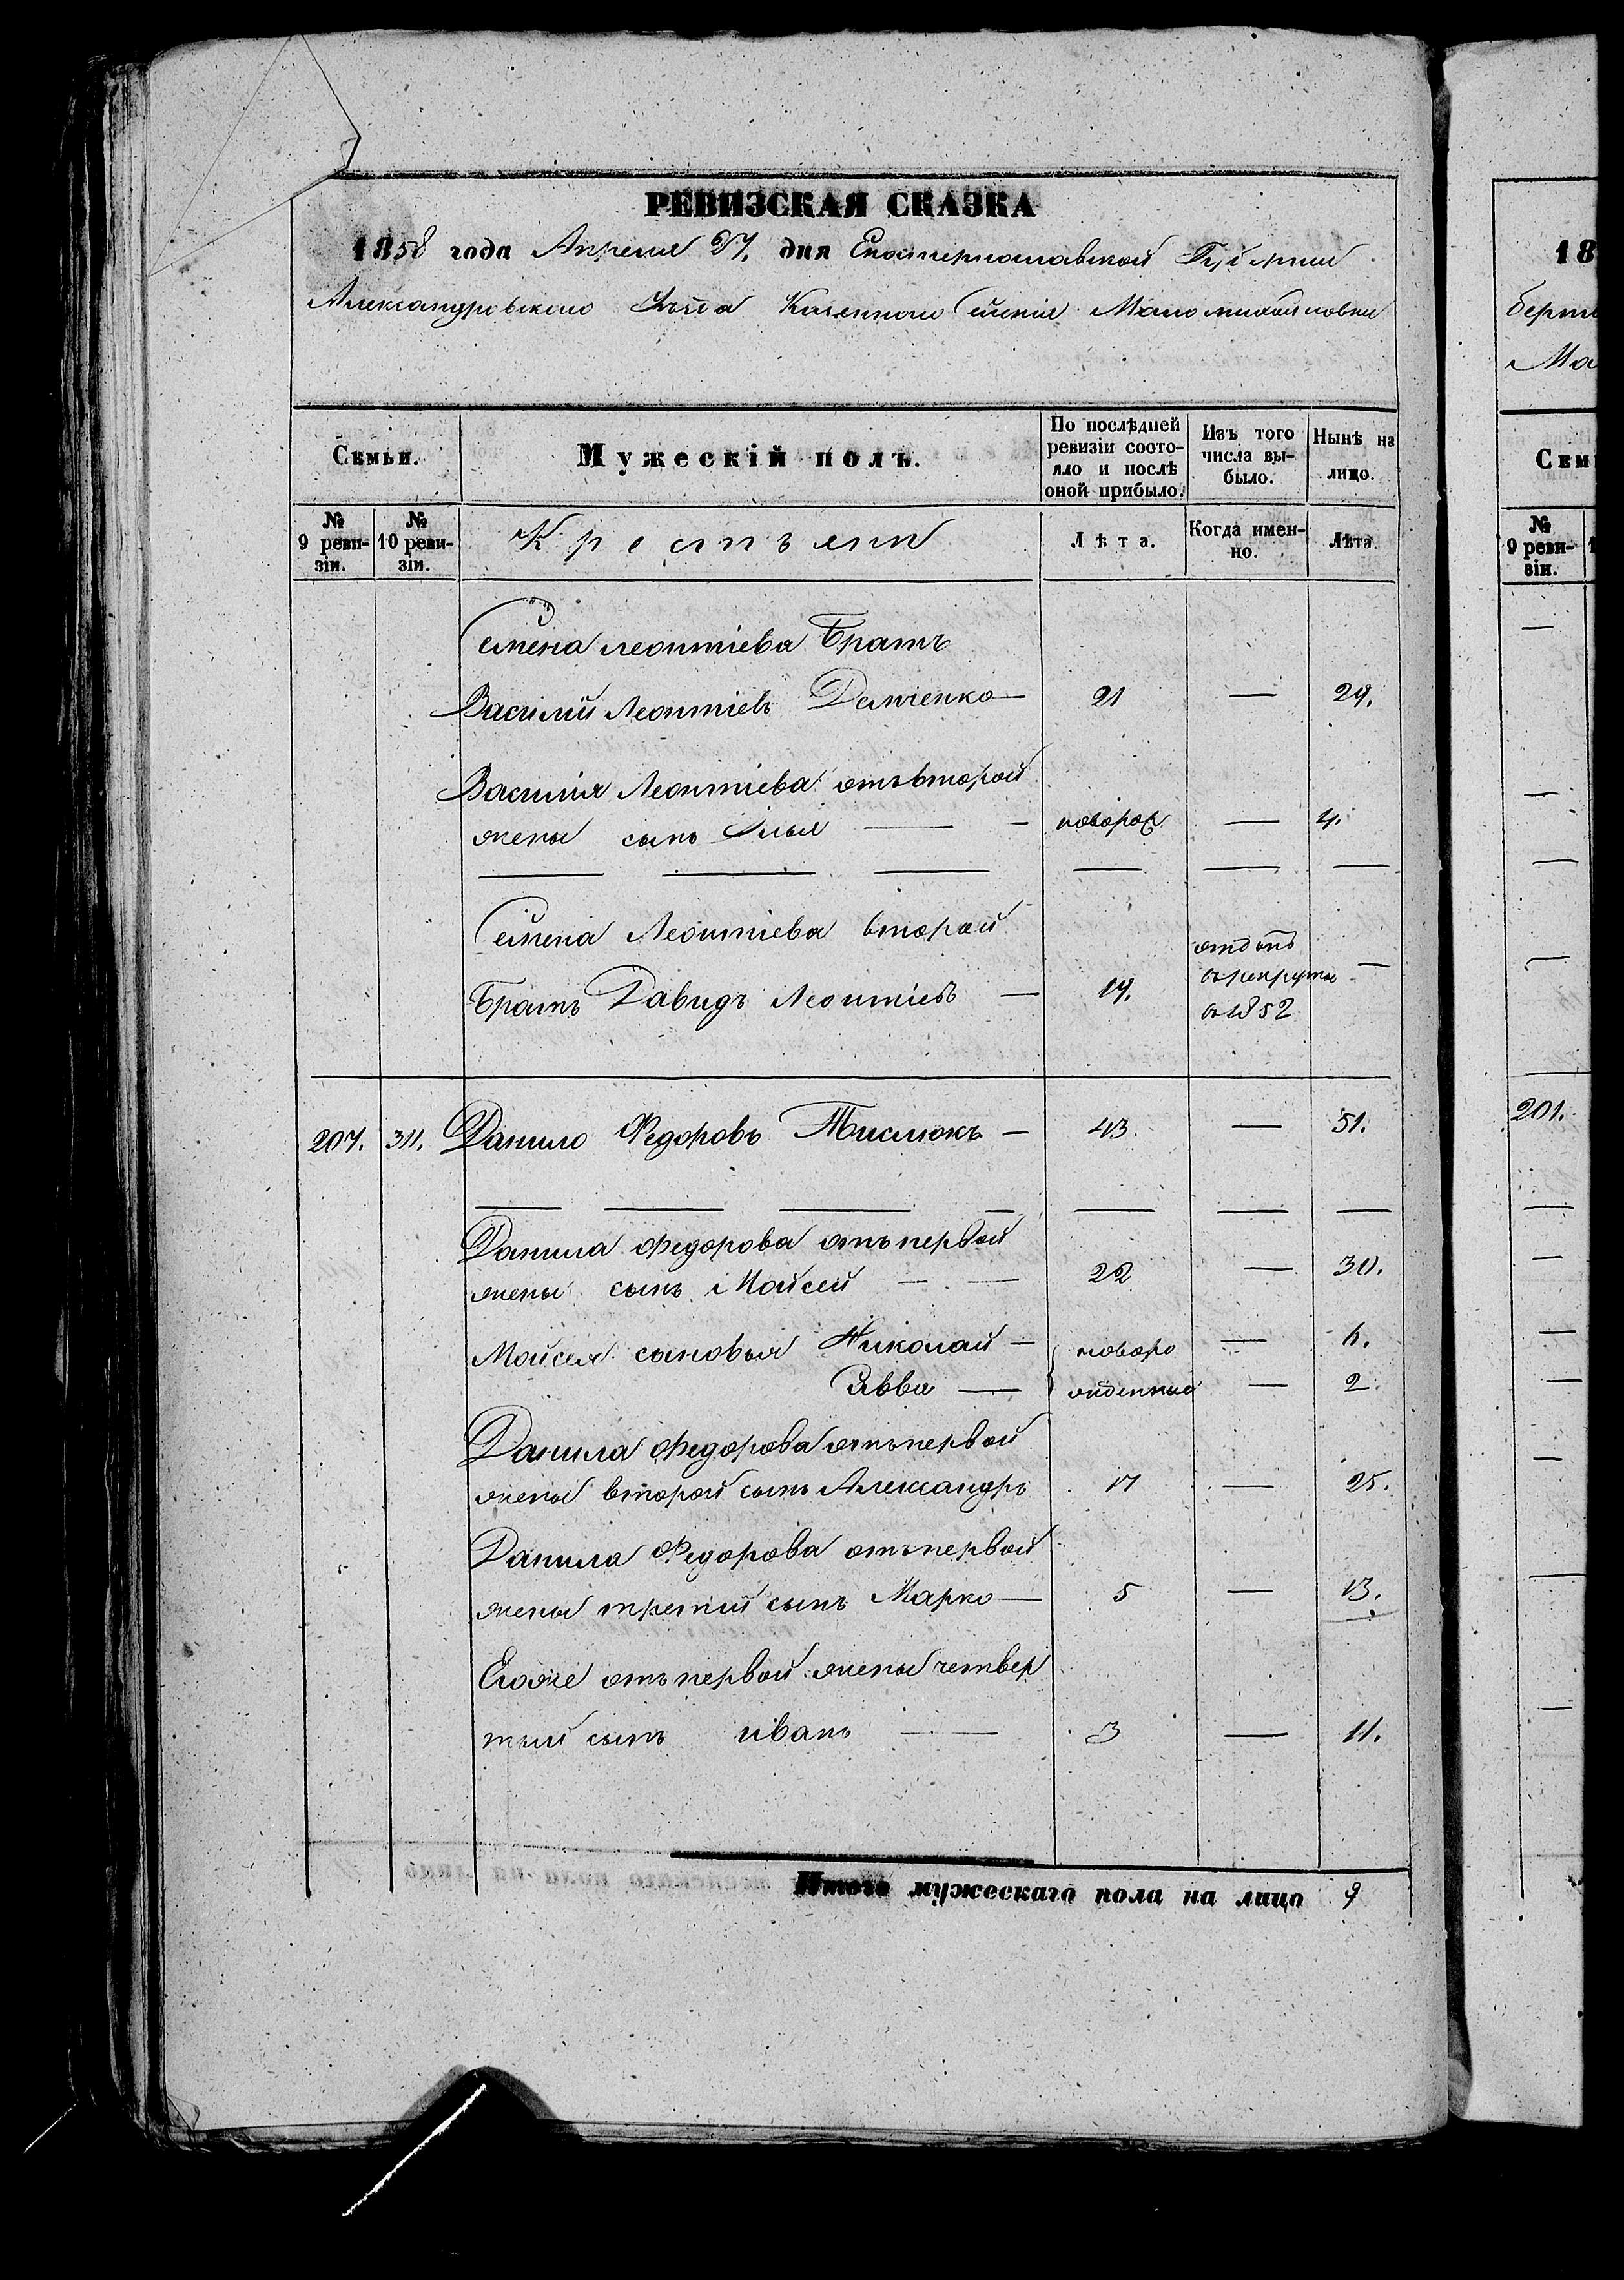 РЕВИЗСКАЯ СКАЗКА
1858 года Апреля 27. дня Екатеринославской Губернии
Александровского Уезда Казенного Селения Маломихайловки
Семьи. Мужескій полъ. По послѣдней ревизіи состо-яло и послѣ оной прибыло. Изъ того числа вы-было. Нынѣ на лицо.
№ 9 реви-зіи. № 10 реви-зіи. Крестьяни Лѣта. Когда имен-но. Лѣта.
Семена леонтіева Братъ
Василій Леонтіевъ Демченко — 21 — 29.
Василія Леонтіева отъ второй
жены сынъ Илья — — новорож — 4.
Семена Леонтіева второй
Братъ Давидъ Леонтіевъ — 19. отданъ въ рекруты в 1852 —
207. 311. Данило Федоровъ Тислюкъ — 43 — 51.
Данила Федорова отъ первой
жены сынъ Мойсей — — 22 — 30.
Мойсея сыновья Николай — новоро — 6.
Савва — жденные — 2.
Данила Федорова отъ первой
жены второй сынъ Александръ 17 — 25.
Данила Федорова отъ первой
жены третий сынъ Марко — 5 — 13.
Егоже отъ первой жены четвер
тый сынъ иванъ — — 3 — 11.
Итого мужескаго пола на лицо 9
18
берт
Ма
Сем
№ 9 реви-зіи.
201.